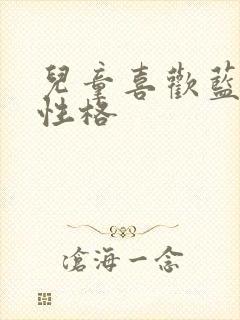 兒童喜歡藍
性格
滄海一念